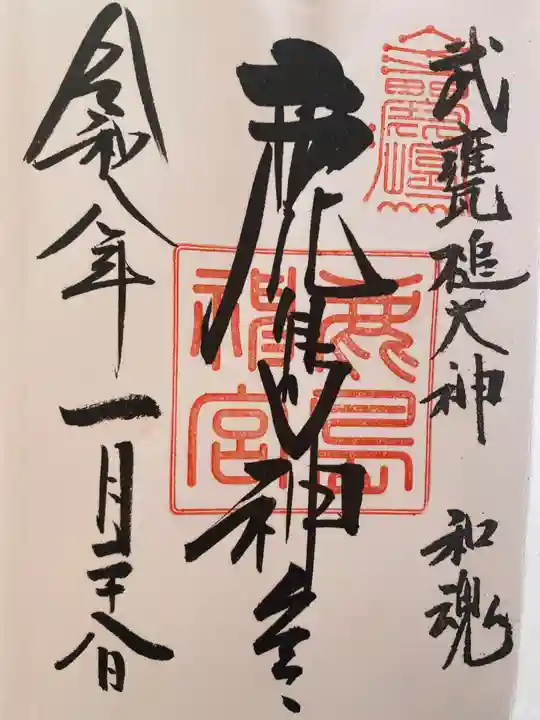 武甕槌大神 和魂
鹿島神宮
鹿島
神宮
令和八年一月二十八日